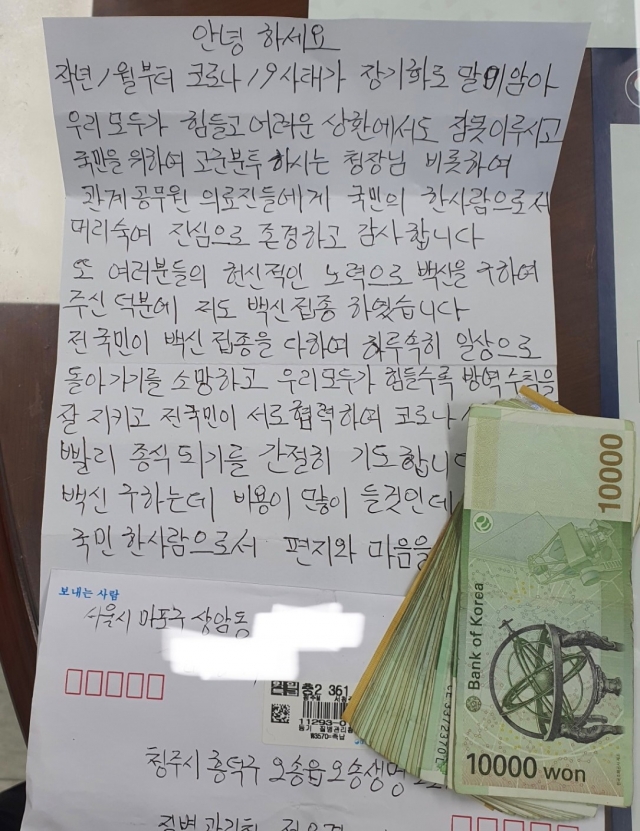 안녕 하세요
작년 1월부터 코로나 19사태가 장기화로 말미암아
우리 모두가 힘들고 어려운 상황에서도 잠못이루시고
국민을 위하여 고군분투 하시는 청장님 비롯하여
관계공무원 의료진들에게 국민의 한사람으로서
머리숙여 진심으로 존경하고 감사합니다
또 여러분들의 헌신적인 노력으로 백신을 구하여
주신 덕분에 저도 백신접종 하였습니다
전국민이 백신접종을 다하여 하루속히 일상으로
돌아가기를 소망하고 우리모두가 힘들수록 방역수칙을
잘 지키고 전국민이 서로협력하며 코로나
빨리 종식되기를 간절히 기도합니다
백신 구하는데 비용이 많이 들것인데
국민 한사람으로서 편지와 마음을
보내는 사람
서울시 마포구 상암동
충2 361
11293-0
등기
청주시 흥덕구 오송읍 오송생명
질병관리청
10000
Bank of Korea
10000 won